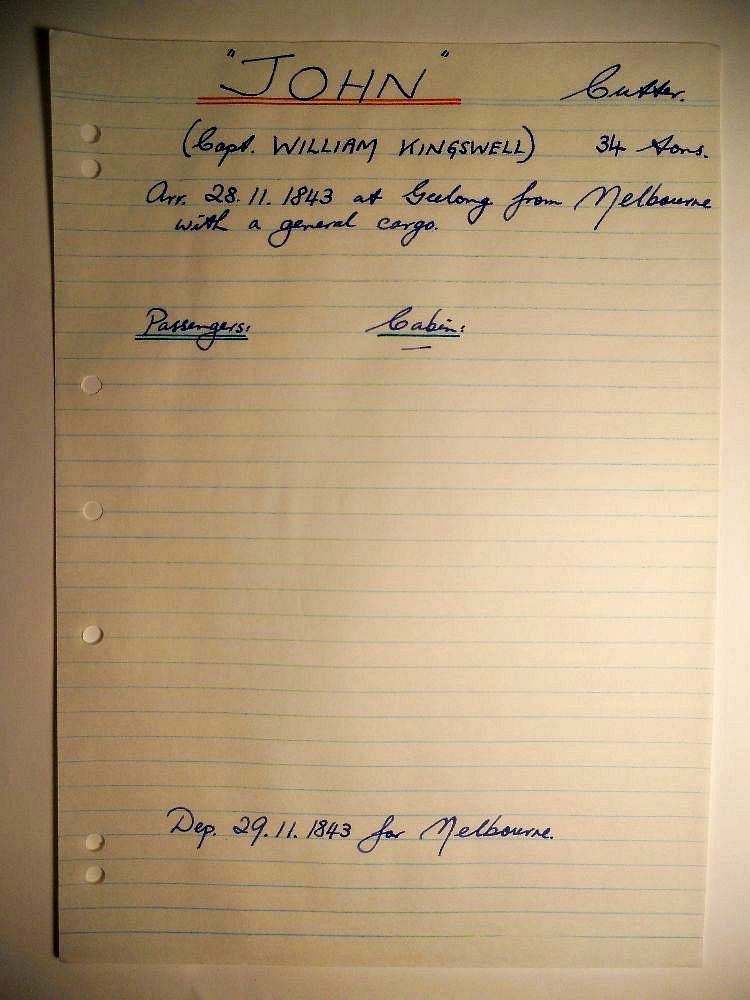 "JOHN" Cutter.
(Capt. WILLIAM KINGSWELL) 34 tons.
Arr. 28.11.1843 at Geelong from Melbourne
with a general cargo.
Passengers: Cabin:
—
Dep. 29.11.1843 for Melbourne.